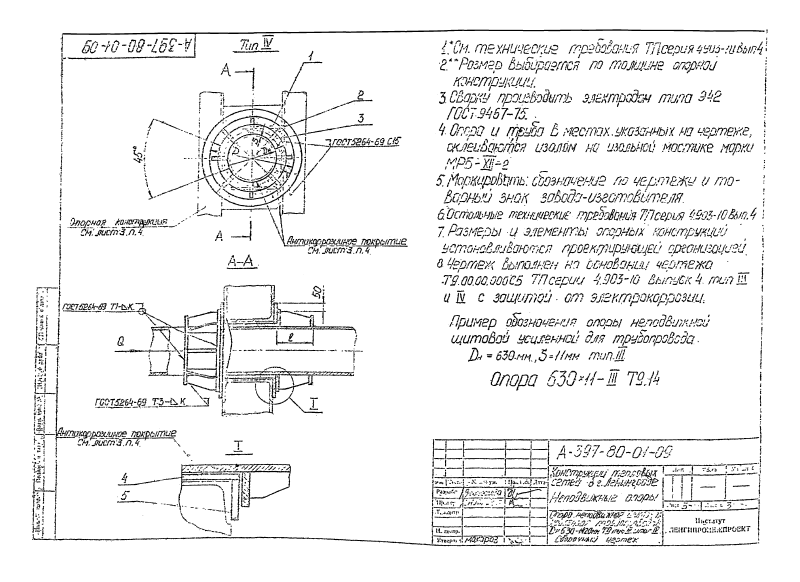 А-397-80-01-09
Тип IV
А
1
2
3
ГОСТ 5264-69 С15
45°
Dн
Опорная конструкция
См. лист 3, п. 4.
А
Антикоррозийное покрытие
См. лист 3. п. 4.
А-А
ГОСТ 5264-69 Т1-⊿К
50
ℓ
Q
I
ГОСТ 5264-69 Т3-⊿К
Антикоррозийное покрытие
См. лист 3. п. 4.
I
4
5
1.* См. технические требования ТП серия 4.903-10 вып 4
2.** Размер выбирается по толщине опорной
конструкции.
3. Сварку производить электродом типа Э42
ГОСТ 9467-75.
4. Опора и труба в местах, указанных на чертеже,
оклеиваются изолом на изольной мастике марки
МРБ-XII-2
5. Маркировать: обозначение по чертежу и то-
варный знак завода-изготовителя.
6. Остальные технические требования ТП серия 4.903-10 Вып. 4
7. Размеры и элементы опорных конструкций
устанавливаются проектирующей организацией.
8 Чертеж выполнен на основании чертежа
Т9.00.00.000СБ ТП серии 4.903-10 выпуск 4. тип III
и IV с защитой от электрокоррозии.
Пример обозначения опоры неподвижной
щитовой усиленной для трубопровода.
Dн = 630 мм, S=11мм тип III
Опора 630×11-III Т9.14
А-397-80-01-09
Конструкций тепловых
сетей в г. Ленинграде
Неподвижные опоры
Опора неподвижная
Сборочный чертеж
Институт
ЛЕНГИПРОИНЖПРОЕКТ
Разраб.
Н. контр.
Макаров